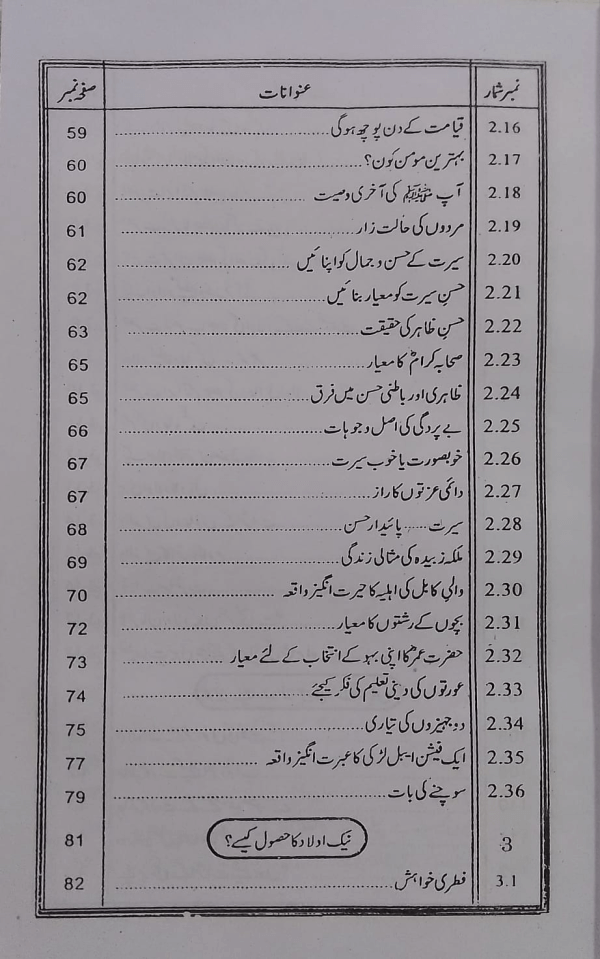 نمبر شمار عنوانات صفحہ نمبر
2.16 قیامت کے دن پوچھ ہوگی 59
2.17 بہترین مومن کون؟ 60
2.18 آپ ﷺ کی آخری وصیت 60
2.19 مردوں کی حالت زار 61
2.20 سیرت کے حسن و جمال کو اپنائیں 62
2.21 حسنِ سیرت کو معیار بنائیں 62
2.22 حسنِ ظاہر کی حقیقت 63
2.23 صحابہ کرامؓ کا معیار 65
2.24 ظاہری اور باطنی حسن میں فرق 65
2.25 بے پردگی کی اصل وجوہات 66
2.26 خوبصورت یا خوب سیرت 67
2.27 دائمی عزتوں کا راز 67
2.28 سیرت ...... پائیدار حسن 68
2.29 ملکہ زبیدہ کی مثالی زندگی 69
2.30 والیِ کابل کی اہلیہ کا حیرت انگیز واقعہ 70
2.31 بچوں کے رشتوں کا معیار 72
2.32 حضرت عمرؓ کا اپنی بہو کے انتخاب کے لئے معیار 73
2.33 عورتوں کی دینی تعلیم کی فکر کیجئے 74
2.34 دو جہیزوں کی تیاری 75
2.35 ایک فیشن ایبل لڑکی کا عبرت انگیز واقعہ 77
2.36 سوچنے کی بات 79
3 نیک اولاد کا حصول کیسے؟ 81
3.1 فطری خواہش 82